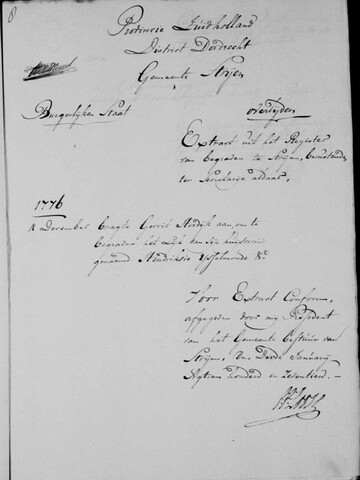 8
Provincie Zuidholland
District Dordrecht
Gemeente Strijen
Burgerlijken Staat
overlyden
Extract uit het Register
van begraven te Strijen, berustende
ter Secretarie aldaar,
1776
December bragte Gerrit aan, om te
begraven het Lijk van zijn huisvrou
genaamd IJsselmonde &c
Voor Extract Conform,
afgegeven door mij President
van het Gemeente Bestuur van
Strijen, den Derde January
Agtien honderd en Zeventien.